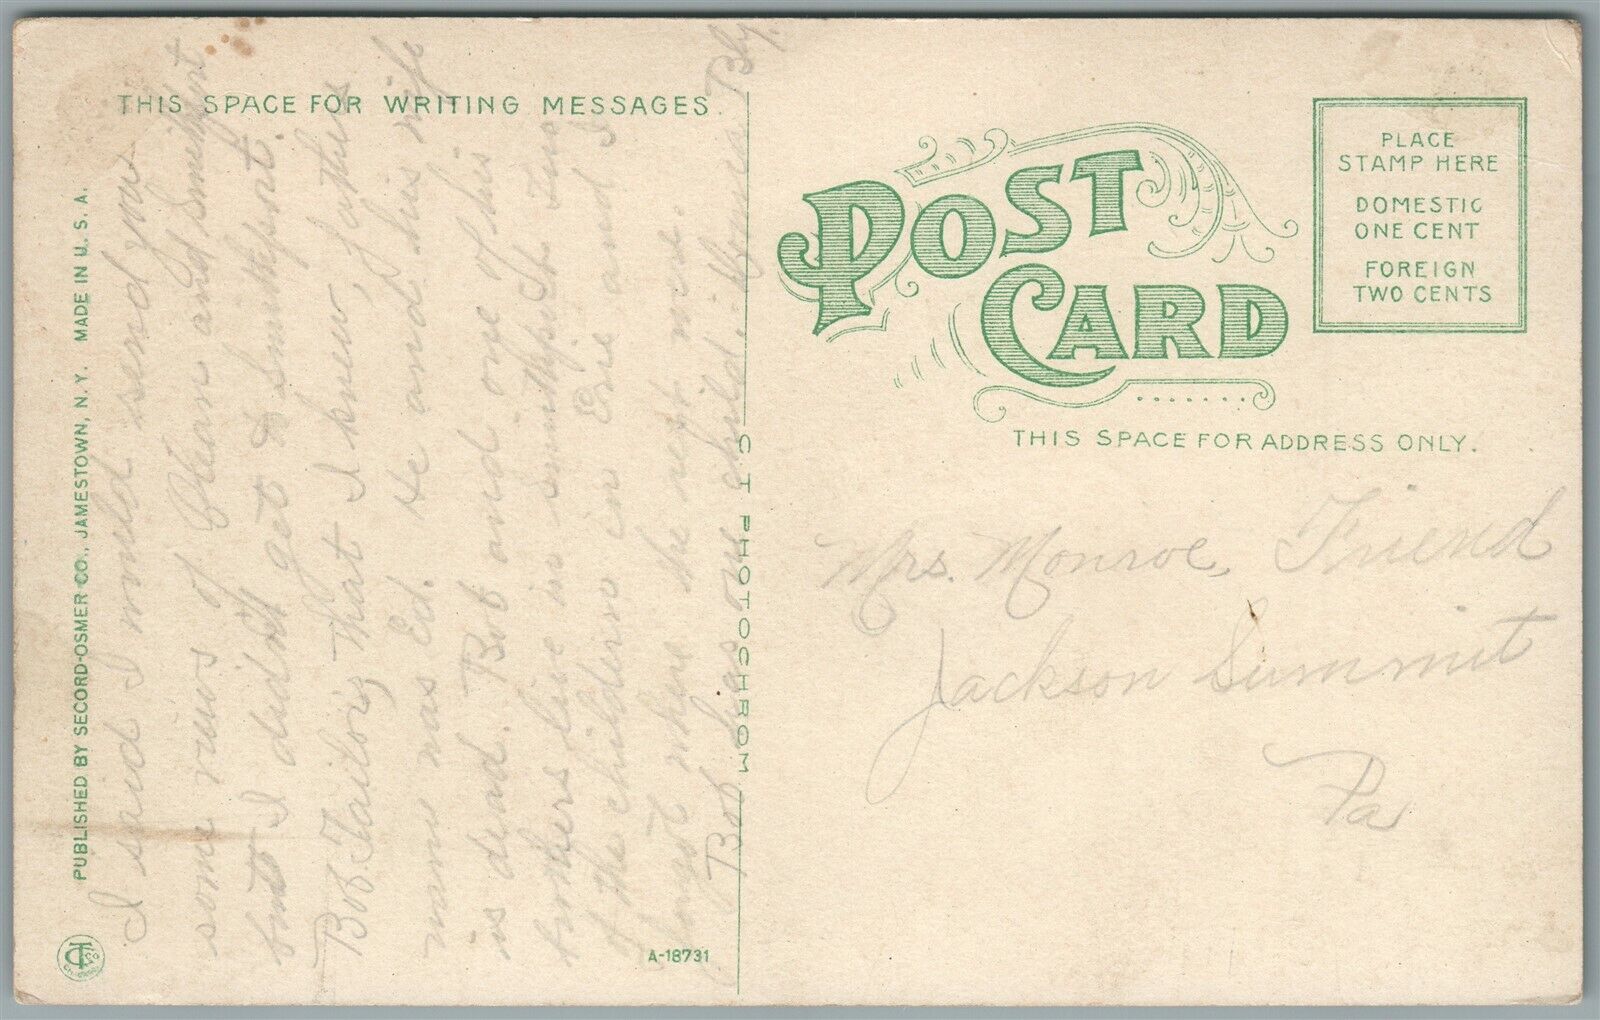 THIS SPACE FOR WRITING MESSAGES.
PUBLISHED BY SECORD-OSMER CO., JAMESTOWN, N.Y. MADE IN U.S.A.
I said I would send you
some views of Olean and Smethport
but I didn't get to Smethport.
Bob Tailor's that I knew, father's
name was Ed. He and his wife
is dead. Bob and one of his
brothers live in Smethport. Two
of the children in Erie and I
forgot where the rest were.
Bob has one child.
C T PHOTOCHROM
A-18731
POST
CARD
THIS SPACE FOR ADDRESS ONLY.
PLACE
STAMP HERE
DOMESTIC
ONE CENT
FOREIGN
TWO CENTS
Mrs. Monroe Friend
Jackson Summit
Pa